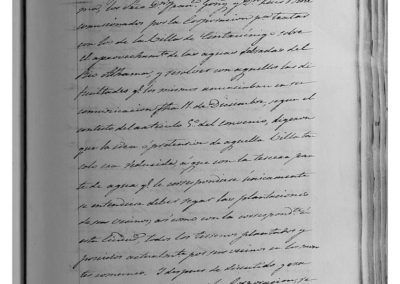 comisionados por la Corporacion pª tratar
con los de la Villa de Cintruenigo sobre
el aprovechamtº de las aguas sobradas del
Rio Alhama, y resolver con aquellos las di-
ficultades qe los mismos anunciaban en su
comunicacion fha 11 de Diciembre, segun el
contesto del articulo 5º del convenio, digeron
que la idea ó pretension de aquella Villa ta
solo era reducida, á que con la tercera par
te de agua qe le corresponderia unicamente
se entendiera deber regar las plantaciones
de sus vecinos, asi como con la correspondte á
esta Ciudad, todos los terrenos plantados y
poseidos actualmte por sus vecinos en los mon
tes comunes. Y despues de discutido y